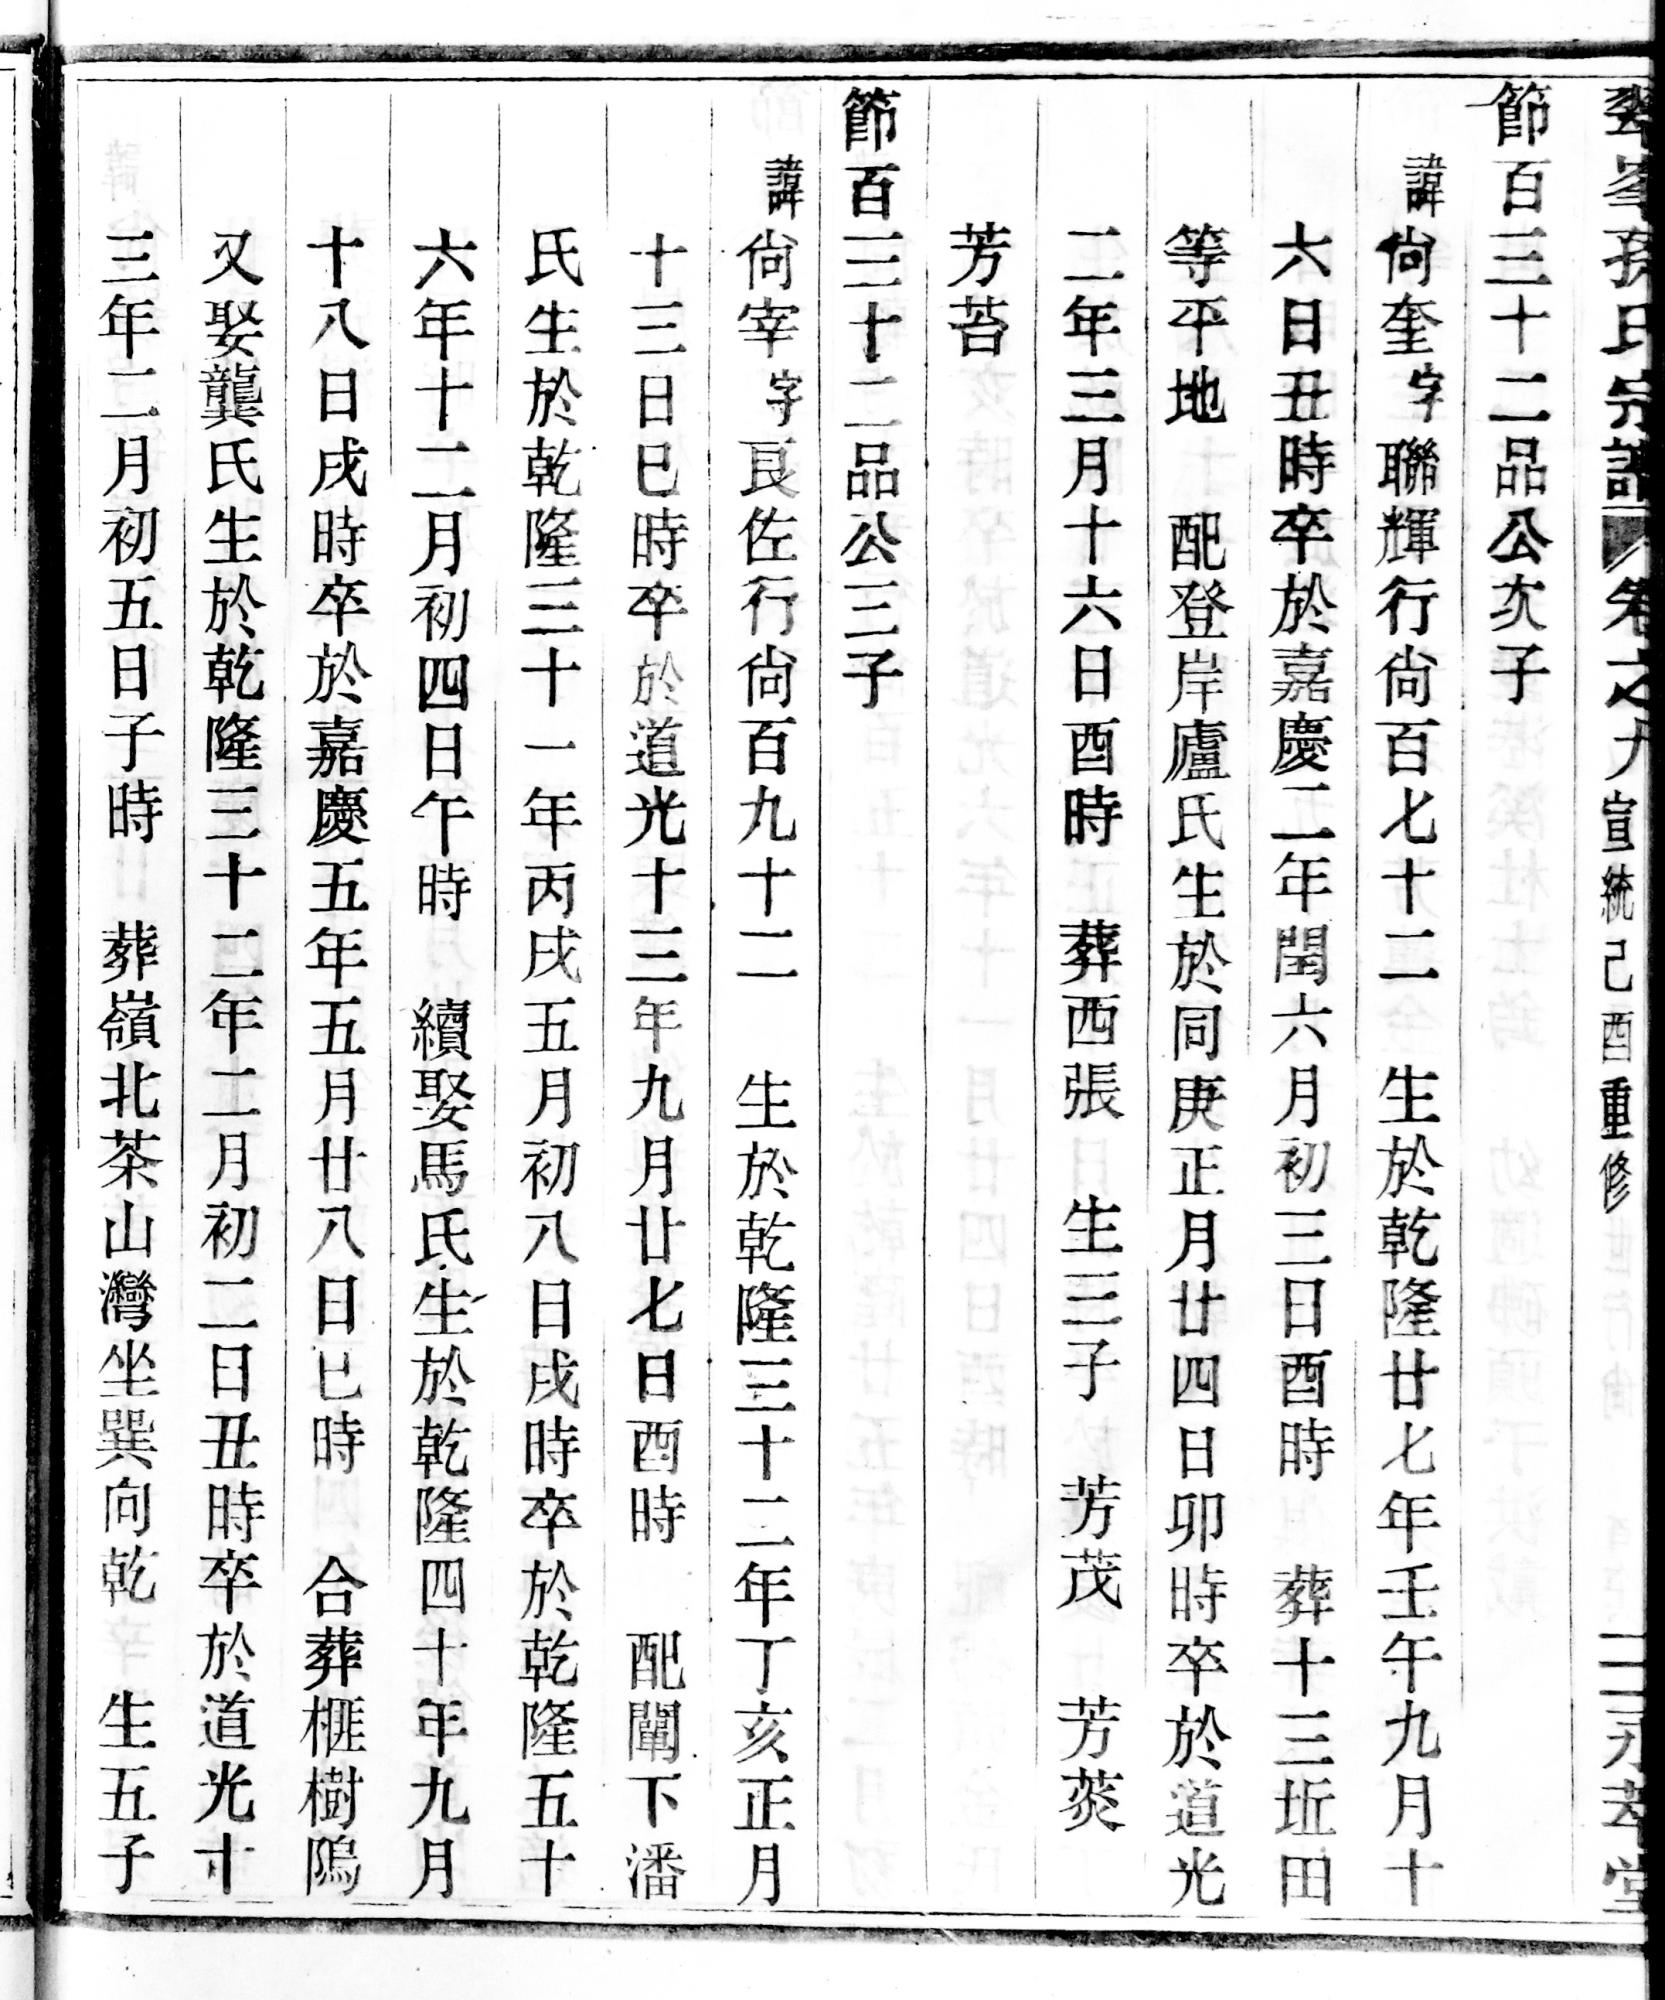 翠峯孫氏宗譜 卷之九 宣統己酉重修 二 永萃堂
節百三十二品公次子
諱尙奎字聯輝行尙百七十二 生於乾隆廿七年壬午九月十
六日丑時卒於嘉慶二年閏六月初三日酉時 葬十三坵田
等平地 配登岸廬氏生於同庚正月廿四日卯時卒於道光
二年三月十六日酉時 葬西張 生三子 芳茂 芳菼
芳苔
節百三十二品公三子
諱尙宰字良佐行尙百九十二 生於乾隆三十二年丁亥正月
十三日巳時卒於道光十三年九月廿七日酉時 配闈下潘
氏生於乾隆三十一年丙戌五月初八日戌時卒於乾隆五十
六年十二月初四日午時 續娶馬氏生於乾隆四十年九月
十八日戌時卒於嘉慶五年五月廿八日巳時 合葬榧樹隖
又娶龔氏生於乾隆三十二年二月初二日丑時卒於道光十
三年二月初五日子時 葬嶺北茶山灣坐巽向乾 生五子